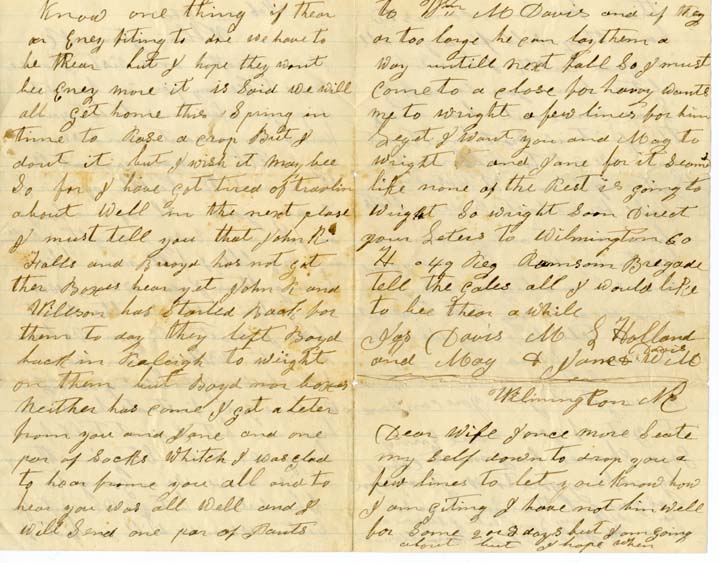 Know one thing if thear
ar Eney fiting to doe we have to
be thear but I hope they wont
bee Eney more it is Said we will
all get home this Spring in
time to Rase a crop But I
dout it but I wish it may bee
So for I have got tired of travlin
about Well in the next plase
I must tell you that John R
Halls and Buoyd has not got
ther Boxes hear yet John R and
Willson has Started Back for
them to day they left Boyd
back in Raleigh to waight
on them but Boyd nor boxes
Neither has come I got a leter
from you and Jane and one
par of Socks Whitch I was glad
to hear frome you all and to
hear you was all Well and I
Will Send one par of Pants
to Wm M Davis and if they
ar too large he can lay them a
way untill next fall So I must
come to a close for harvy wants
me to wright a few lines for him
I want you and May to
wright and Jane for it Seams
like none of the Rest is going to
wright So wright Soon Direct
your Leters to Wilmington Co
H 49 Reg Ransom Bregade
tell the all I would like
to bee thear a while
Jas Davis M L Holland
and May & Jane Davis W M
Wilmington NC
Dear Wife I once more Seate
my Self down to drop you a
few lines to let you Know how
I am giting I have not bin well
for Some 2 or 3 days but I am going
about but I hope when